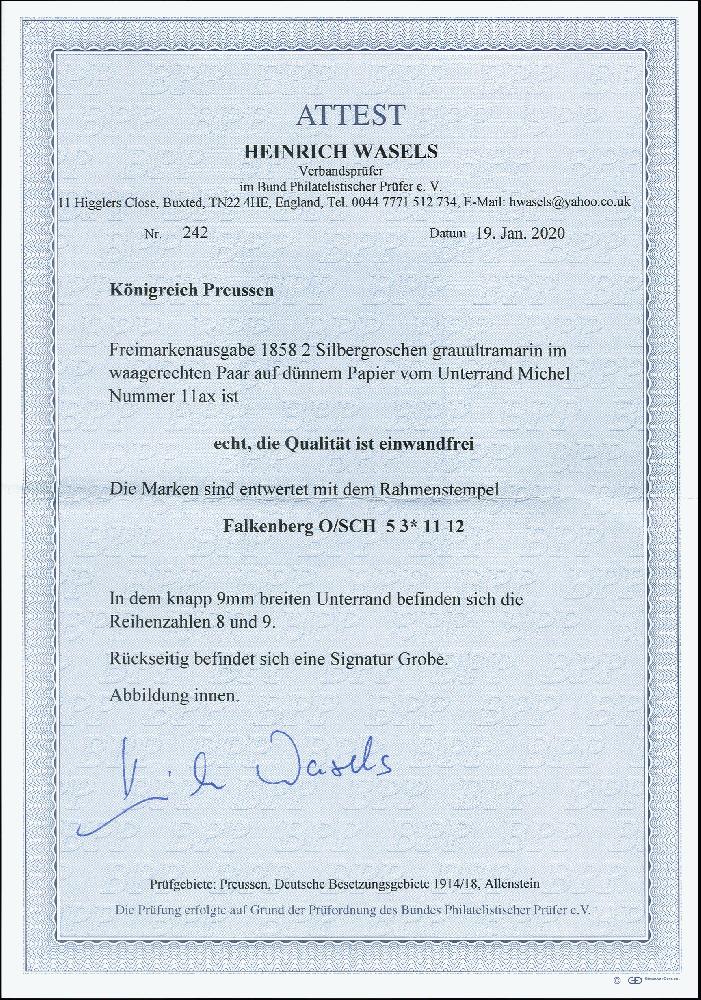 ATTEST
HEINRICH WASELS
Verbandsprüfer
im Bund Philatelistischer Prüfer e. V.
11 Higglers Close, Buxted, TN22 4HE, England, Tel. 0044 7771 512 734, E-Mail: hwasels@yahoo.co.uk
Nr. 242 Datum 19. Jan. 2020
Königreich Preussen
Freimarkenausgabe 1858 2 Silbergroschen grauultramarin im
waagerechten Paar auf dünnem Papier vom Unterrand Michel
Nummer 11ax ist
echt, die Qualität ist einwandfrei
Die Marken sind entwertet mit dem Rahmenstempel
Falkenberg O/SCH 5 3* 11 12
In dem knapp 9mm breiten Unterrand befinden sich die
Reihenzahlen 8 und 9.
Rückseitig befindet sich eine Signatur Grobe.
Abbildung innen.
Wasels
Prüfgebiete: Preussen, Deutsche Besetzungsgebiete 1914/18, Allenstein
Die Prüfung erfolgte auf Grund der Prüfordnung des Bundes Philatelistischer Prüfer e.V.